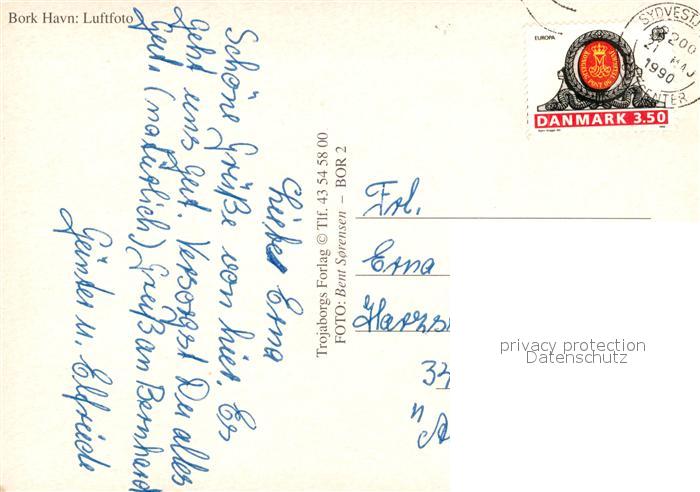 Bork Havn: Luftfoto
Liebe Erna
Schöne Grüße von hier. Es
geht uns gut. Versorgst Du alles
gut. (natürlich) Gruß an Bernhard
Günter u. Elfriede
Trojaborgs Forlag © Tlf. 43 54 58 00
FOTO: Bent Sørensen – BOR 2
EUROPA
DANMARK 3.50
SYDVEST
200
1990
CENTER
Frl.
Erna
privacy protection
Datenschutz